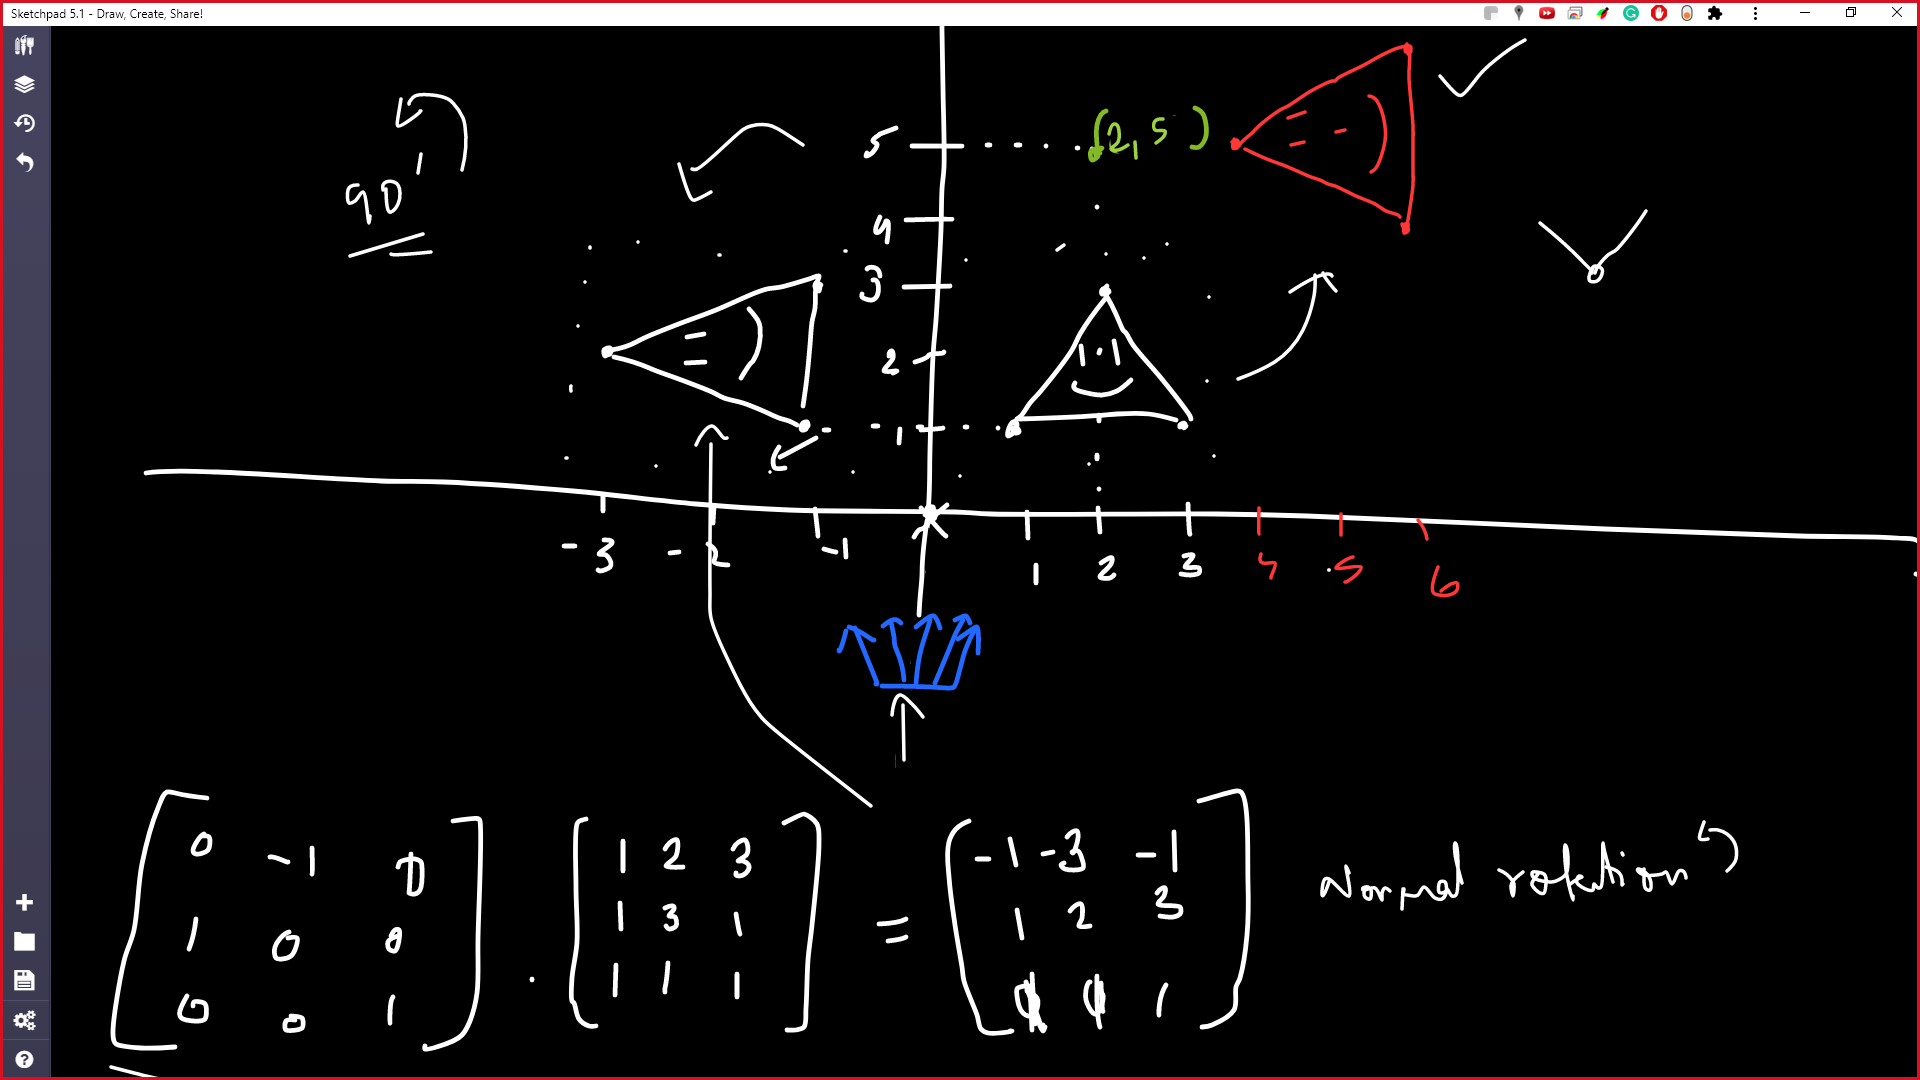 Sketchpad 5.1 - Draw, Create, Share!
90'
5
(2, 5)
4
3
2
1
-3 -2 -1 1 2 3 4 5 6
0 -1 0
1 0 0
0 0 1
.
1 2 3
1 3 1
1 1 1
=
-1 -3 -1
1 2 3
1 1 1
Normal rotation